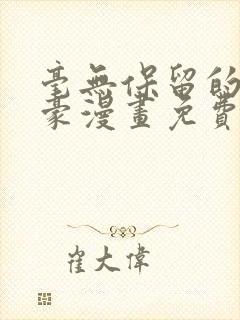 毫無保留的
豪漫畫免費
崔大偉